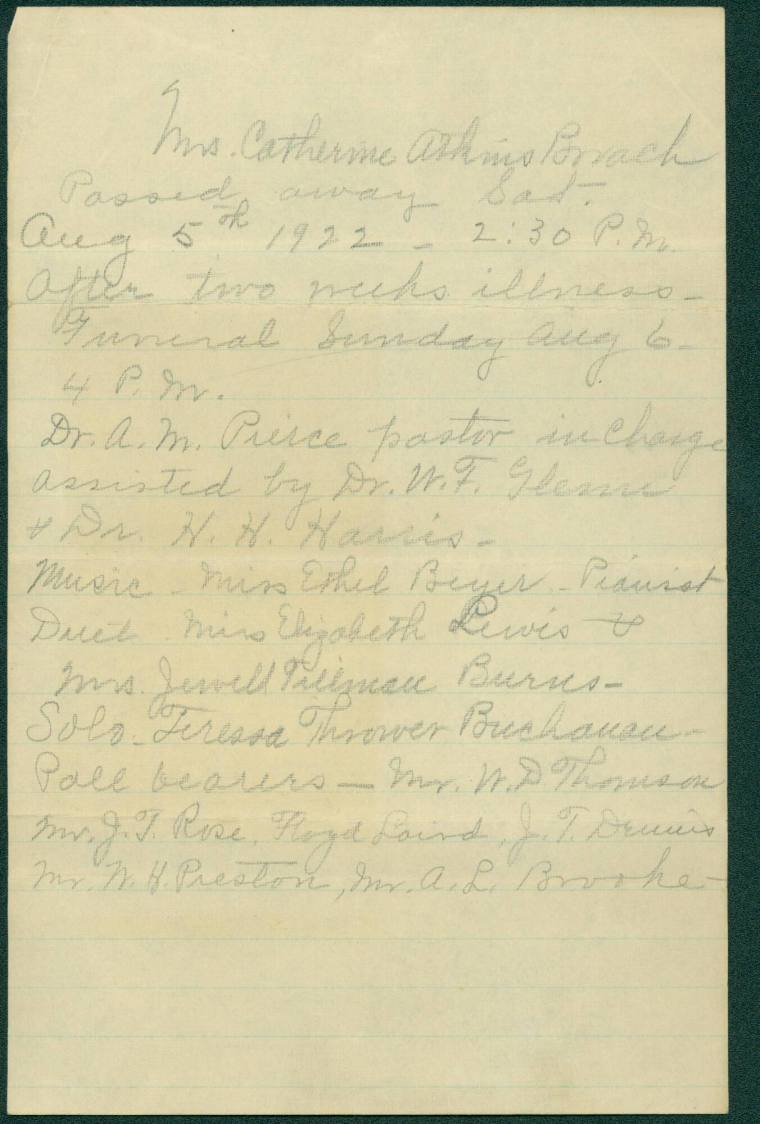 Mrs. Catherine Atkins
Passed away Sat.
Aug 5th 1922 - 2:30 P.M.
After two weeks illness -
Funeral Sunday Aug 6 -
4 P.M.
Dr. A. M. Pierce pastor in Charge
assisted by Dr. W. F. Glenn
& Dr. H. H. Harris -
Music - Miss Ethel Beyer - Pianist
Duet Miss Elizabeth Lewis &
Mrs. Jewell Tillman Burns -
Solo - Teressa Thrower Buchanan -
Pall bearers — Mr. W. D Thomson
Mr. J. T. Rose, Floyd Laird, J. T.
Mr. W. H. Preston, Mr. A. L. Brooke -